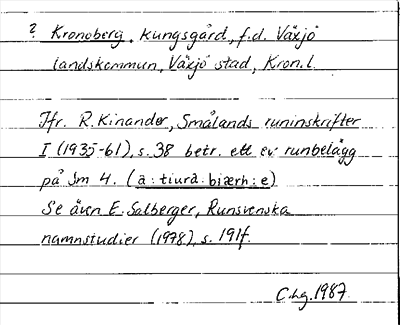 ? Kronoberg, kungsgård, f.d. Växjö
landskommun, Växjö stad, Kron.l.
Jfr. R. Kinander, Smålands runinskrifter
I (1935-61), s. 38 betr. ett ev runbelägg
på Sm 4. (a : tiurå · biærh : e)
Se även E. Salberger, Runsvenska
namnstudier (1978), s. 191f.
C.hg. 1987